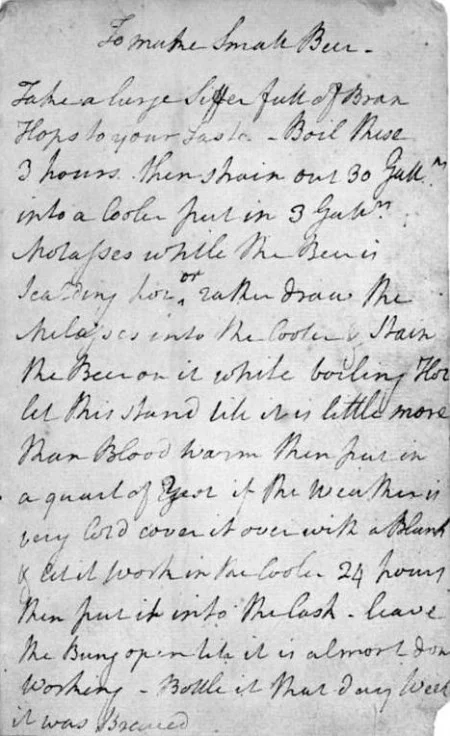 To make Small Beer -
Take a large Siffer full of Bran
Hops to your Taste - Boil these
3 hours. then strain out 30 Gall.ns
into a Cooler put in 3 Gall.ns
Molasses while the Beer is
Scalding hot or rather draw the
Molasses into the Cooler & Stain
the Beer on it while boiling Hot
let this stand till it is little more
than Blood warm then put in
a quart of Yest if the Weather is
very Cold cover it over with a Blank
& let it work in the Cooler 24 hours
then put it into the Cask - leave
the Bung open till it is almost don
working - Bottle it that day Week
it was Brewed